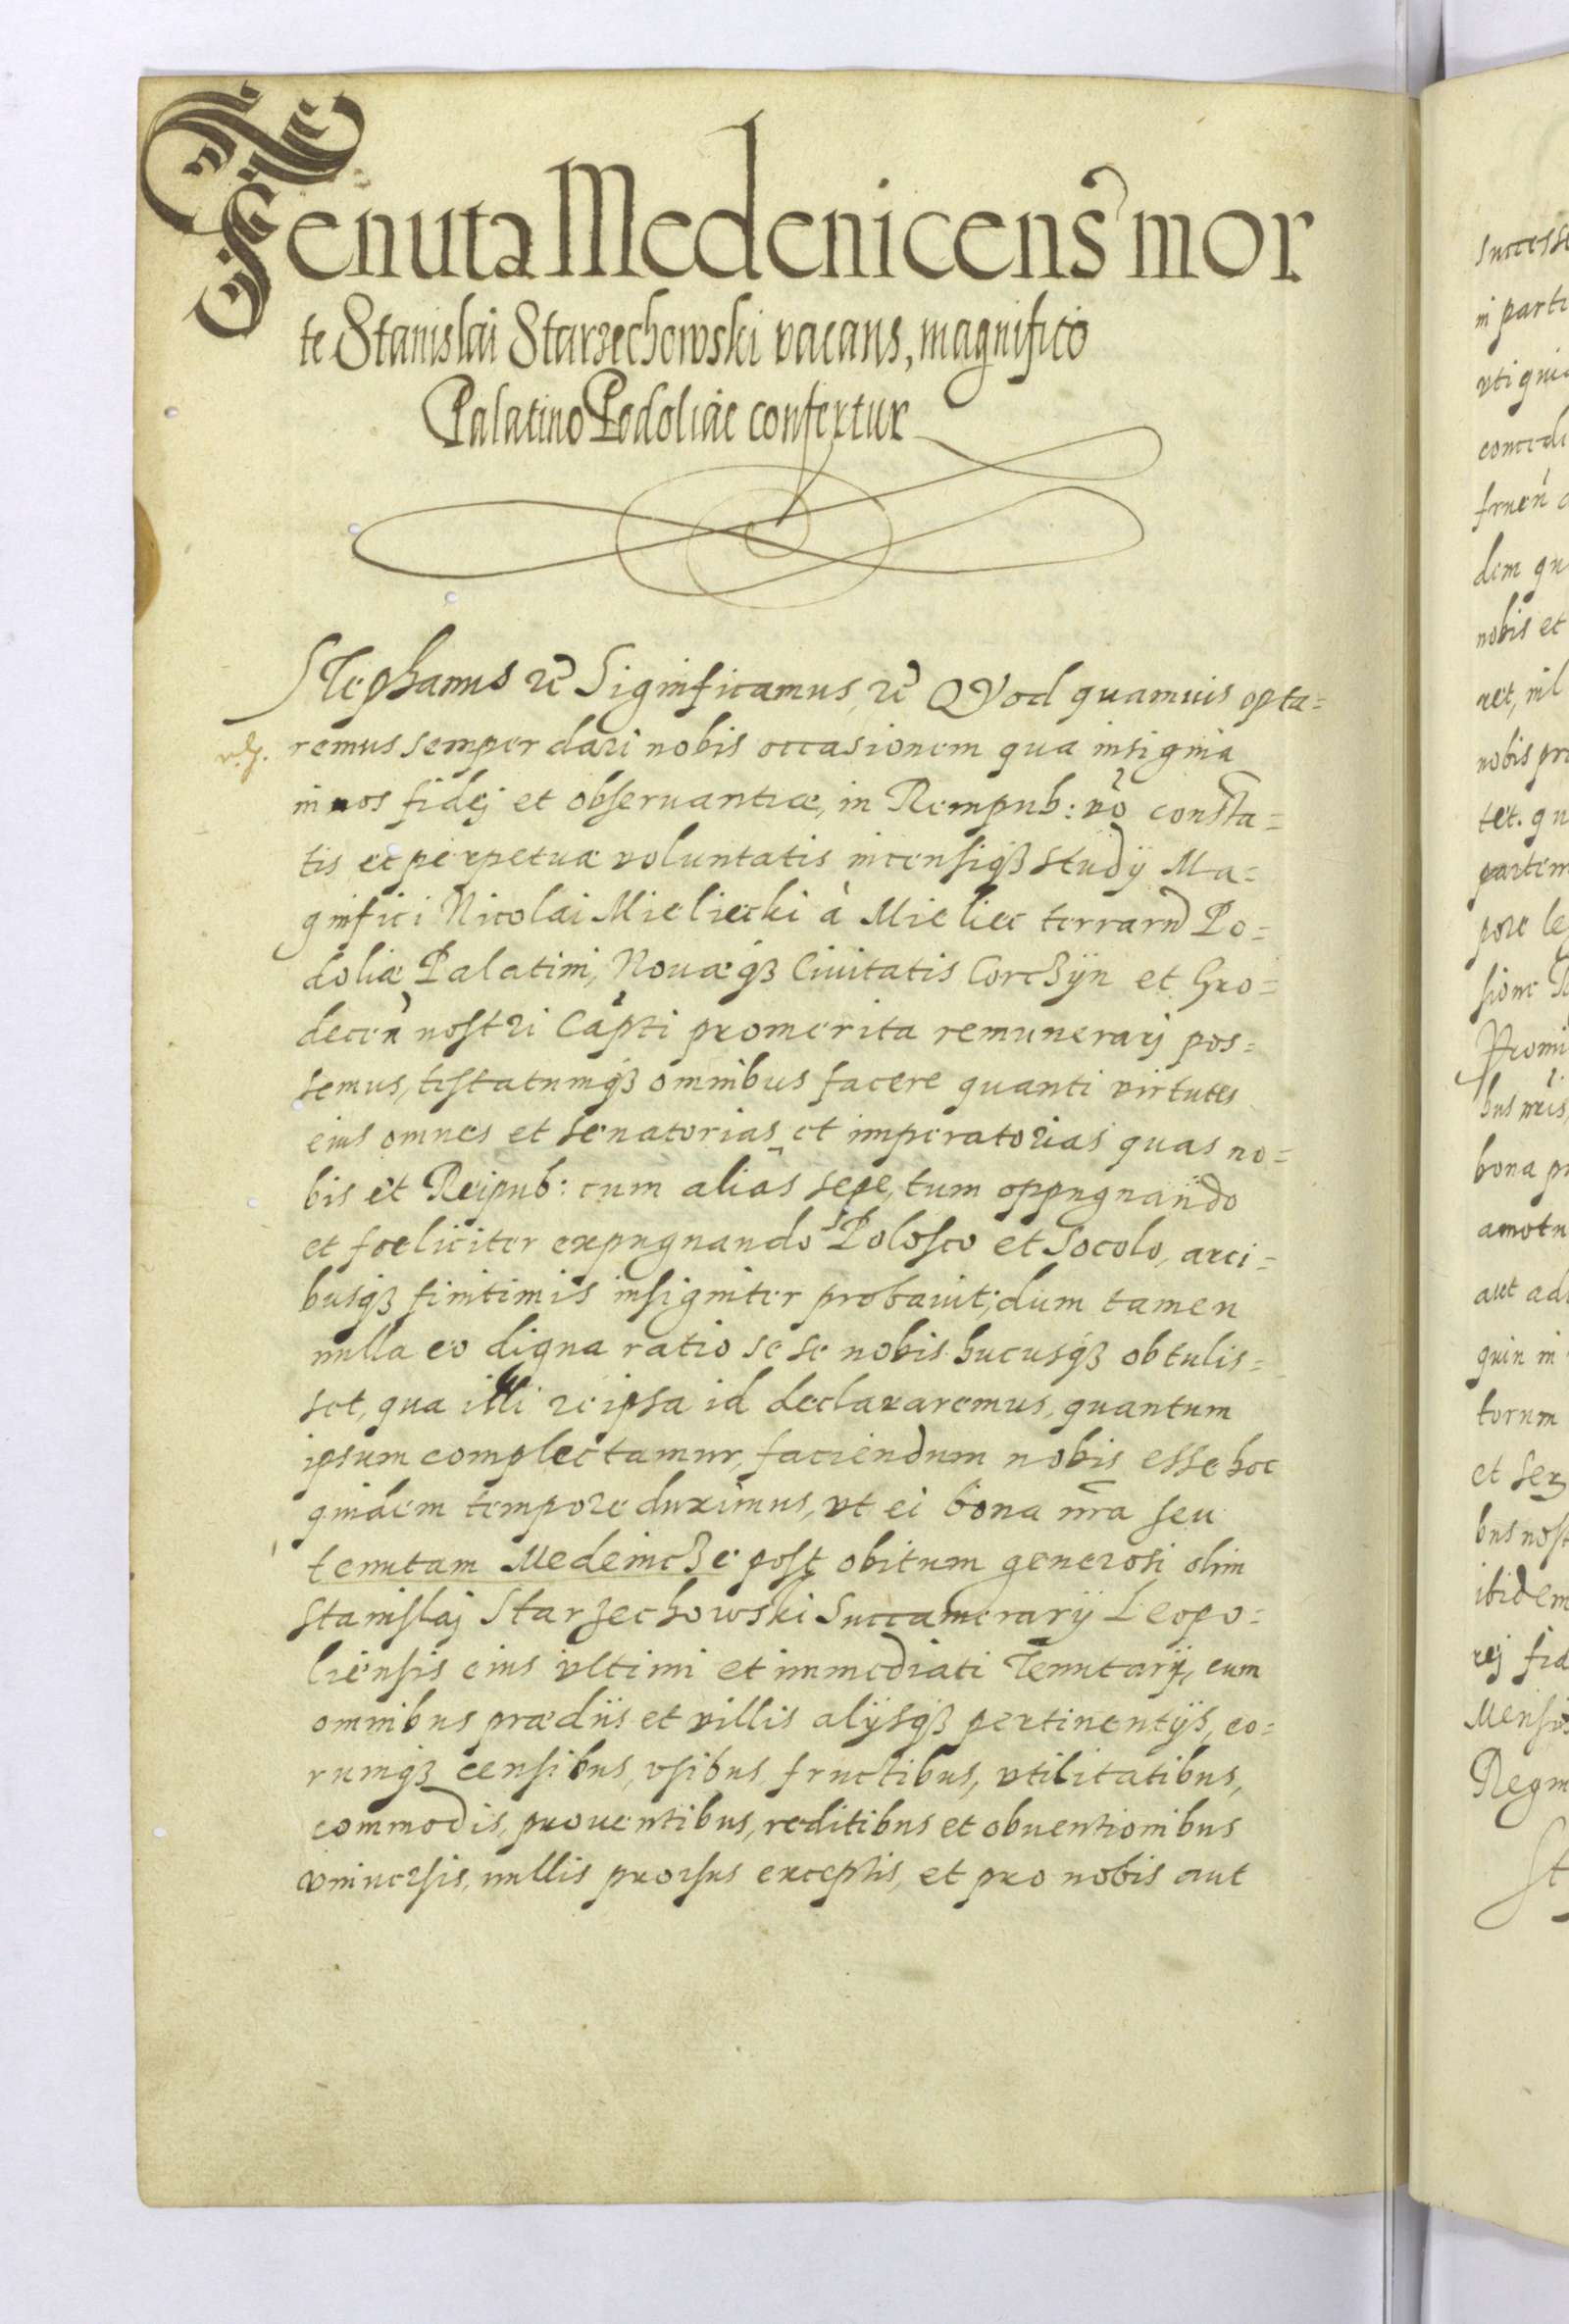 Tenuta Medenicens̃ mor
te Stanislai Starzechowski vacans, magnifico
Palatino Podoliae confertur
Stephanus rc̃ Significamus, rc̃ QVod quamuis opta=
remus semper dari nobis occasionem qua insignia
in nos fidej et obseruantiæ, in Rempub: võ consta=
tis et perpetuæ voluntatis incensiqȝ studij Ma=
gnifici Nicolai Mieliecki à Mieliec terrarũ Po=
doliæ Palatini, Nouæqȝ Ciuitatis Corcȝijn et Gro=
decen̄ nostri Capti promerita remunerarj pos=
semus, testatumqȝ omnibus facere quanti virtutes
eius omnes et senatorias et imperatorias quas no=
bis et Reipub: cum alias sepe, tum oppugnando
et foeliciter expugnando Polosco et Socolo, arci=
busqȝ finitimis insigniter probauit; dum tamen
nulla eo digna ratio se se nobis hucusqȝ obtulis=
set, qua illi reipsa id declararemus, quantum
ipsum complectamur, faciendum nobis esse hoc
quidem tempore duximus, vt ei bona nr̃a seu
tenutam Medenicȝe post obitum generosi olim
Stanislaj Starzechowski Succamerarij Leopo=
liensis eius vltimi et immediati Tenutarij, cum
omnibus prædiis et villis alijsqȝ pertinentijs, eo=
rumqȝ censibus, vsibus fructibus, vtilitatibus,
commodis, prouentibus, reditibus et obuentionibus
vniuersis, nullis prorsus exceptis, et pro nobis aut